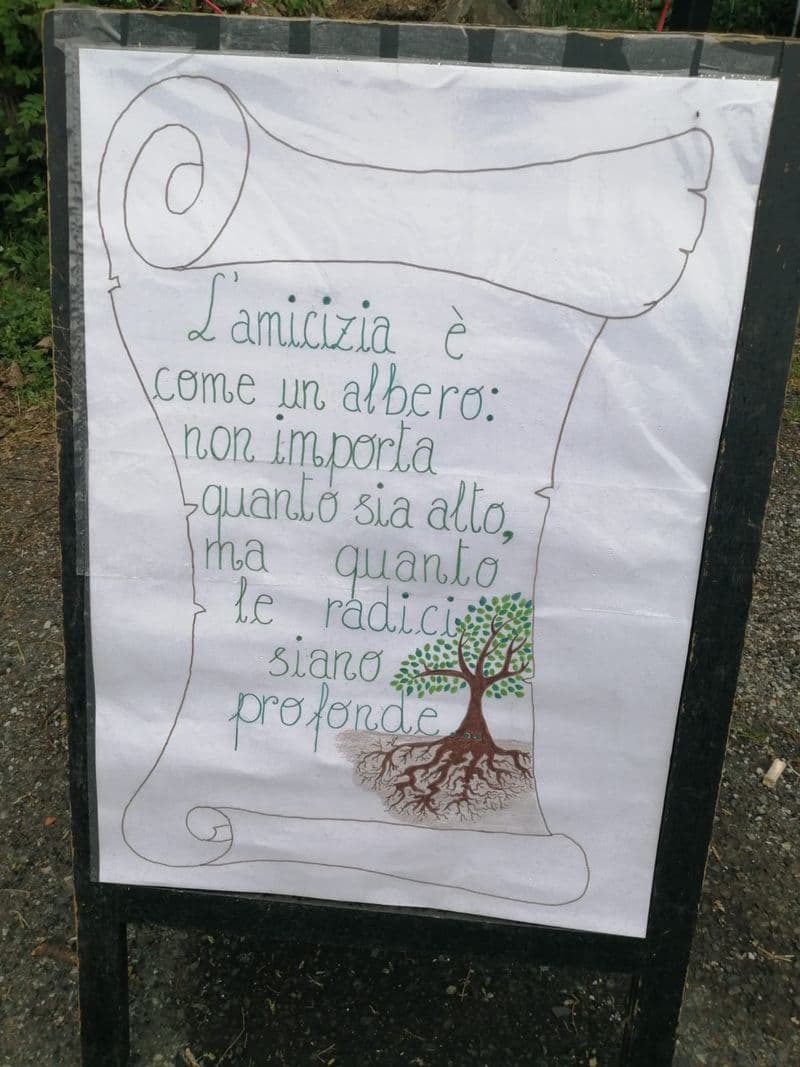 L'amicizia è
come un albero:
non importa
quanto sia alto,
ma quanto
le radici
siano
profonde...